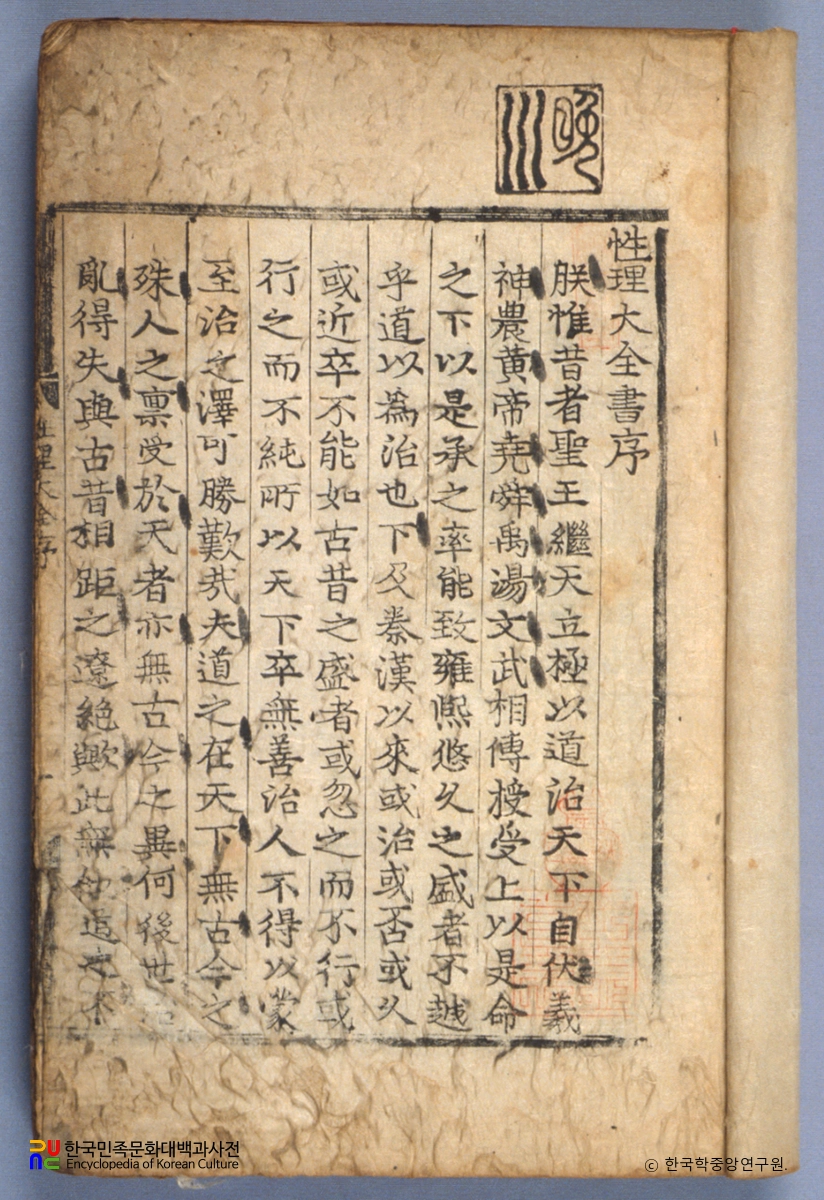 性理大全書序
朕惟昔者聖王繼天立極以道治天下自伏羲
神農黃帝堯舜禹湯文武相傳授受上以是命
之下以是承之率能致雍熙悠久之盛者不越
乎道以爲治也下及秦漢以來或治或否或久
或近卒不能如古昔之盛者或忽之而不行或
行之而不純所以天下卒無善治人不得以蒙
至治之澤可勝歎哉夫道之在天下無古今之
殊人之稟受於天者亦無古今之異何後世治
亂得失與古昔相距之遼絶歟此無他道之不
性理大全序
한국민족문화대백과사전
Encyclopedia of Korean Culture
© 한국학중앙연구원.